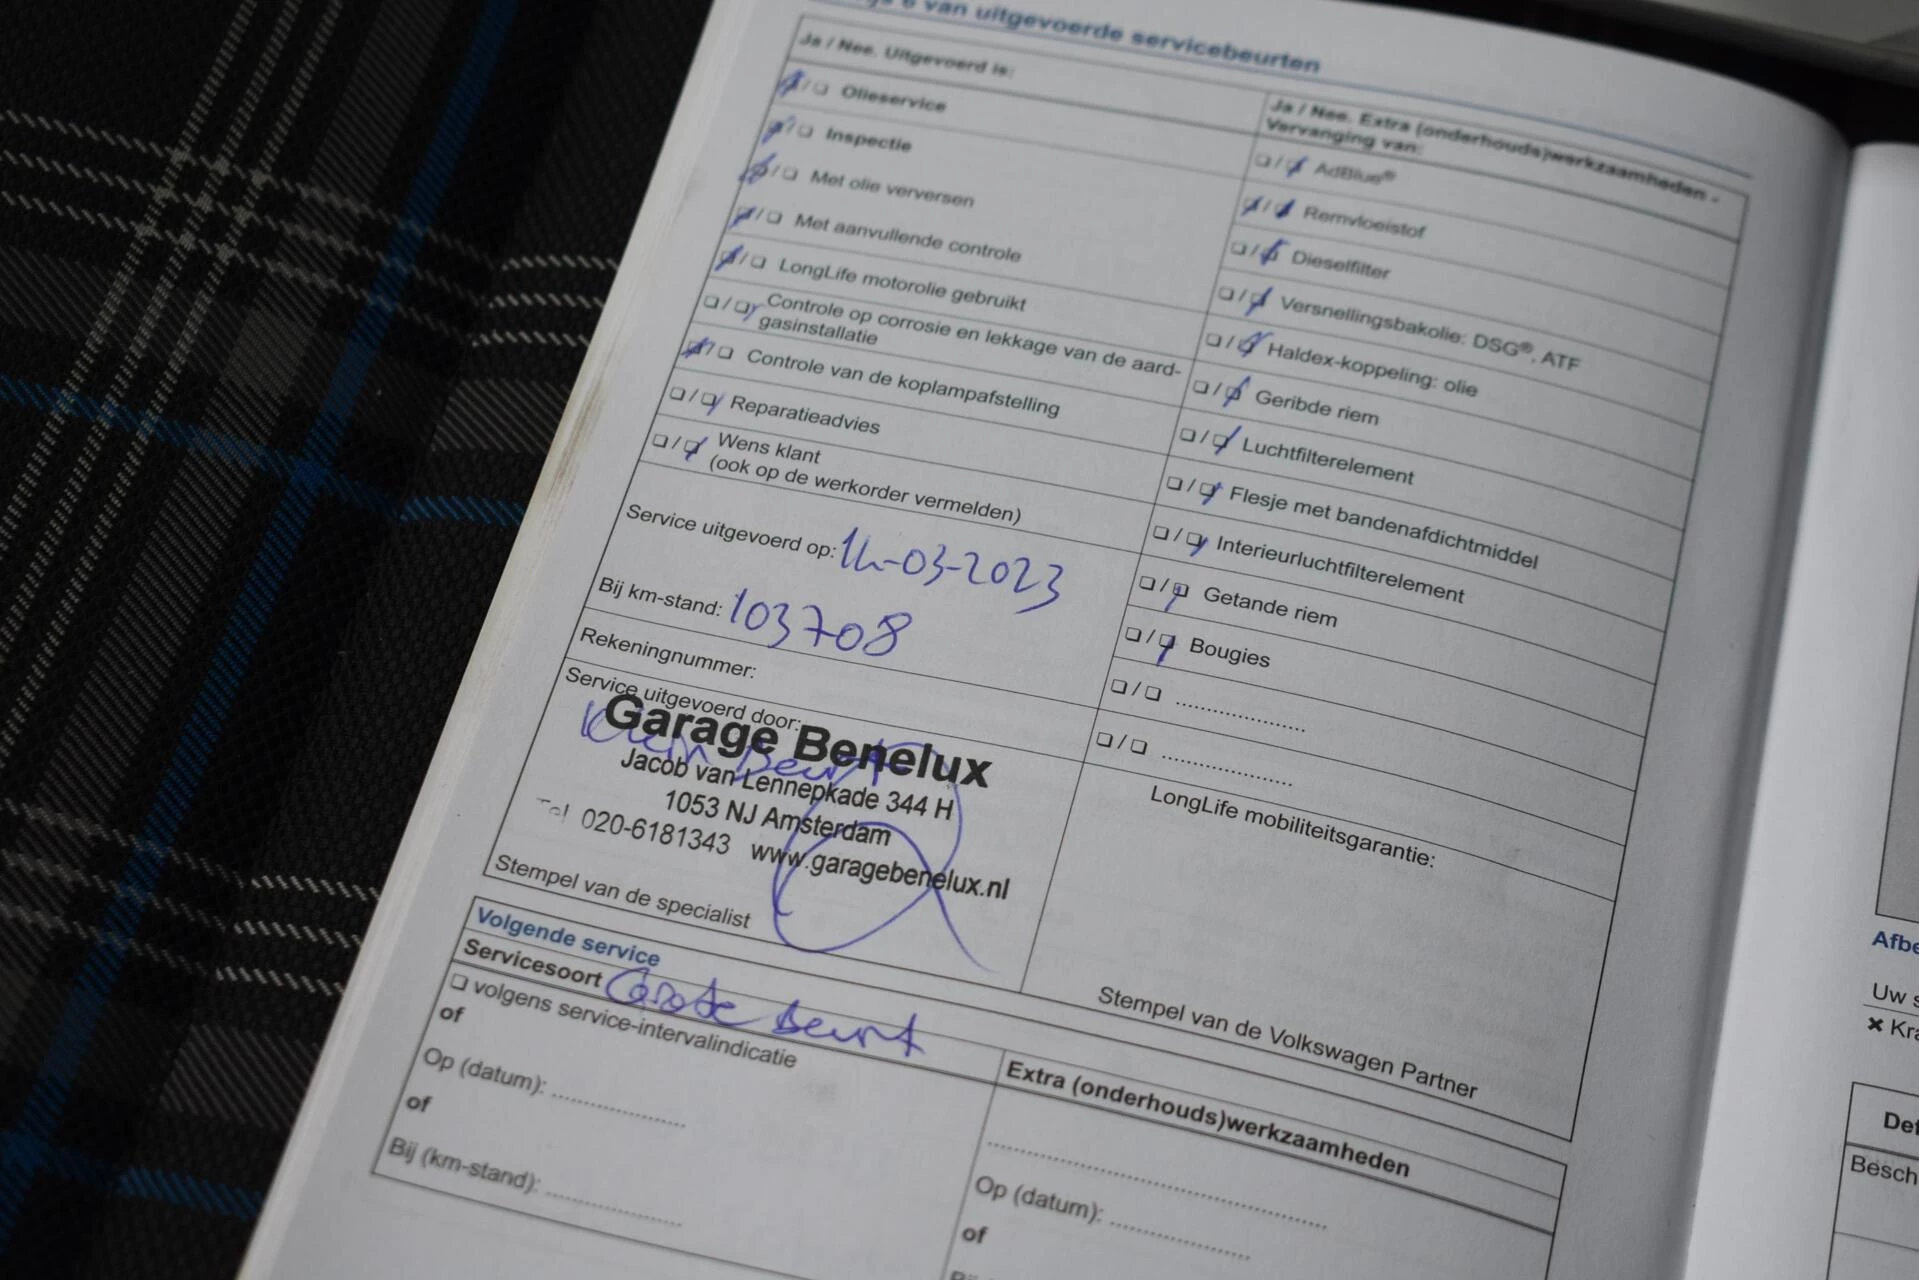 6 van uitgevoerde servicebeurten
Ja / Nee. Uitgevoerd is:
❑ / ❑ Olieservice
❑ / ❑ Inspectie
❑ / ❑ Met olie verversen
❑ / ❑ Met aanvullende controle
❑ / ❑ LongLife motorolie gebruikt
❑ / ❑ Controle op corrosie en lekkage van de aard-
gasinstallatie
❑ / ❑ Controle van de koplampafstelling
❑ / ❑ Reparatieadvies
❑ / ❑ Wens klant
(ook op de werkorder vermelden)
Service uitgevoerd op: 14-03-2023
Bij km-stand: 103708
Rekeningnummer:
Service uitgevoerd door:
Klein Beurt
Garage Benelux
Jacob van Lennepkade 344 H
1053 NJ Amsterdam
Tel 020-6181343 www.garagebenelux.nl
Stempel van de specialist
Ja / Nee. Extra (onderhouds)werkzaamheden -
Vervanging van:
❑ / ❑ AdBlue®
❑ / ❑ Remvloeistof
❑ / ❑ Dieselfilter
❑ / ❑ Versnellingsbakolie: DSG®, ATF
❑ / ❑ Haldex-koppeling: olie
❑ / ❑ Geribde riem
❑ / ❑ Luchtfilterelement
❑ / ❑ Flesje met bandenafdichtmiddel
❑ / ❑ Interieurluchtfilterelement
❑ / ❑ Getande riem
❑ / ❑ Bougies
❑ / ❑ ......................
❑ / ❑ ......................
LongLife mobiliteitsgarantie:
Stempel van de Volkswagen Partner
Volgende service
Servicesoort Grote Beurt
❑ volgens service-intervalindicatie
of
Op (datum): ......................
of
Bij (km-stand): ......................
Extra (onderhouds)werkzaamheden
......................................................
Op (datum): ......................
of
Afbe
Uw s
✖ Kra
Def
Besch